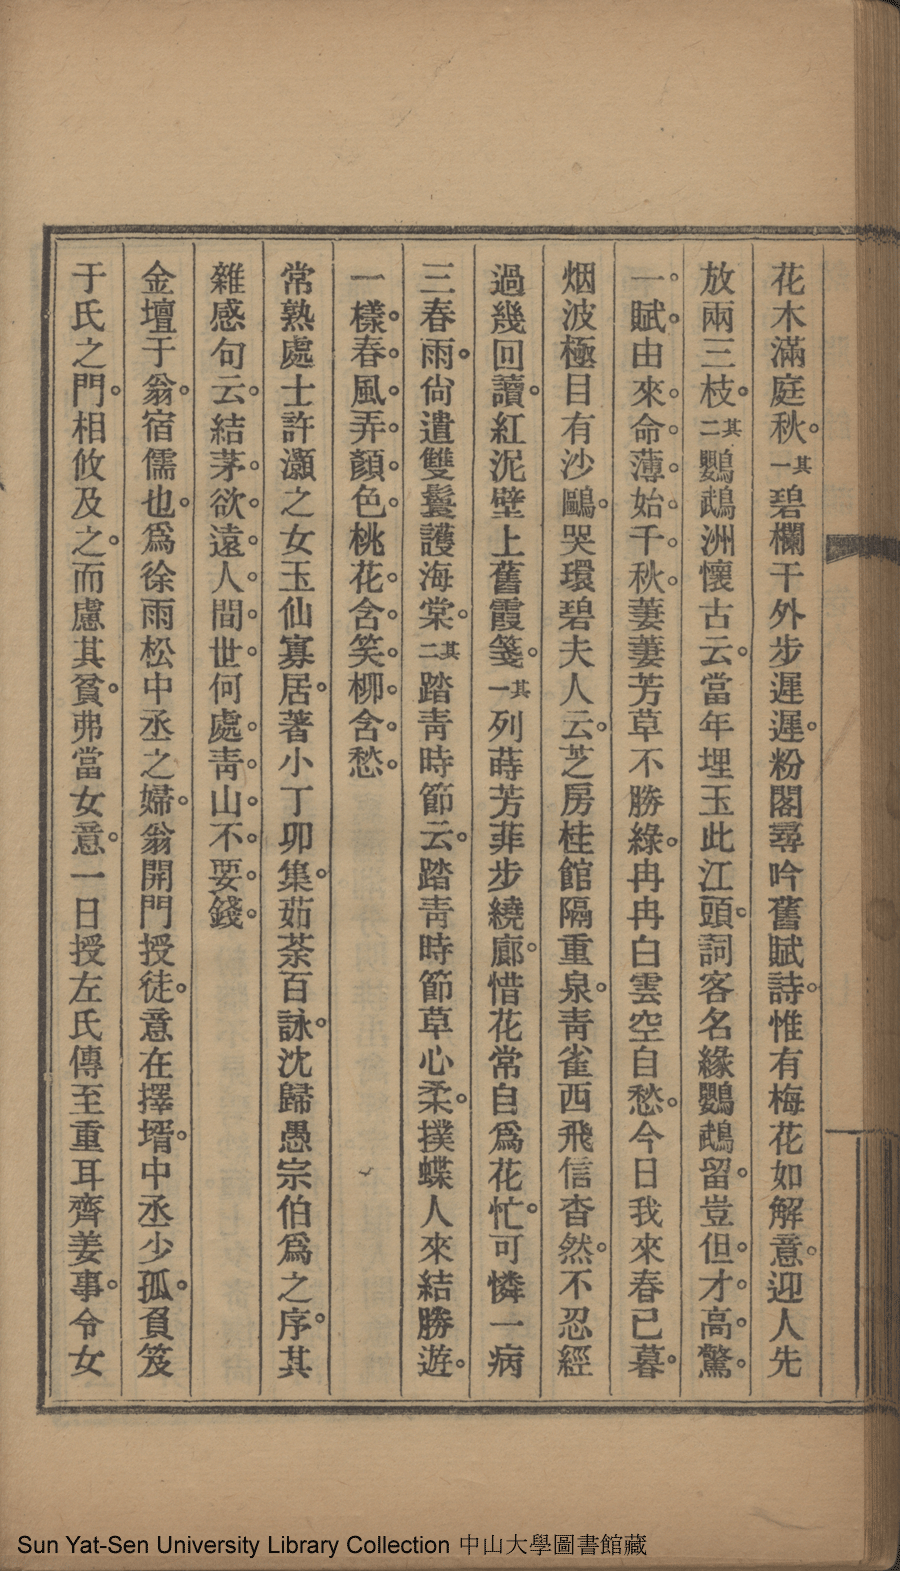 花木滿庭秋。其一碧欄干外步遲遲。粉閣尋吟舊賦詩。惟有梅花如解意。迎人先
放兩三枝。其二鸚鵡洲懷古云。當年埋玉此江頭。詞客名緣鸚鵡留。豈但。才。高。驚。
一。賦。由來。命。薄。始。千。秋。萋萋芳草不勝綠。冉冉白雲空自愁。今日我來春已暮。
烟波極目有沙鷗。哭環碧夫人云。芝房桂館隔重泉。靑雀西飛信杳然。不忍經
過幾回讀。紅泥壁上舊霞箋。其一列蒔芳菲步繞廊。惜花常自爲花忙。可憐一病
三春雨。尙遣雙鬟護海棠。其二踏靑時節云。踏靑時節草心柔。撲蝶人來結勝遊。
一樣。春。風。弄。顏。色。桃花。含。笑。柳。含。愁。
常熟處士許灝之女玉仙寡居。著小丁卯集。茹荼百詠。沈歸愚宗伯爲之序。其
雜感句云。結茅。欲。遠。人。間。世。何處。靑。山。不。要。錢。
金壇于翁。宿儒也。爲徐雨松中丞之婦。翁開門授徒。意在擇壻。中丞少孤。負笈
于氏之門。相攸及之。而慮其貧。弗當女意。一日授左氏傳至重耳齊姜事。令女
Sun Yat-Sen University Library Collection 中山大學圖書館藏